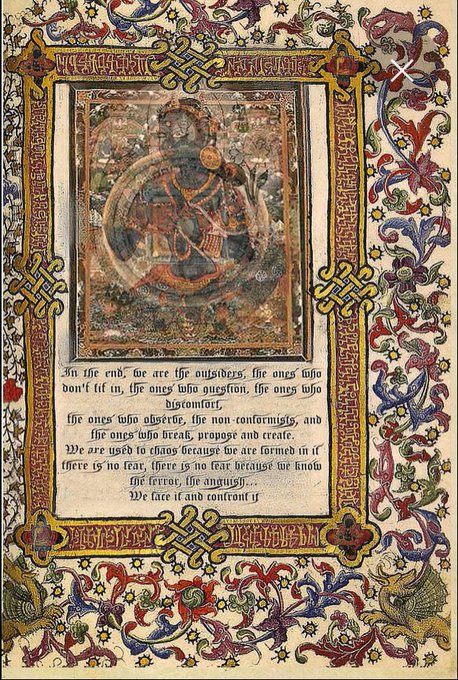 In the end, we are the outsiders, the ones who
don't fit in, the ones who question, the ones who
discomfort,
the ones who observe, the non-conformists, and
the ones who break, propose and create.
We are used to chaos because we are formed in it
there is no fear, there is no fear because we know
the terror, the anguish...
We face it and confront it